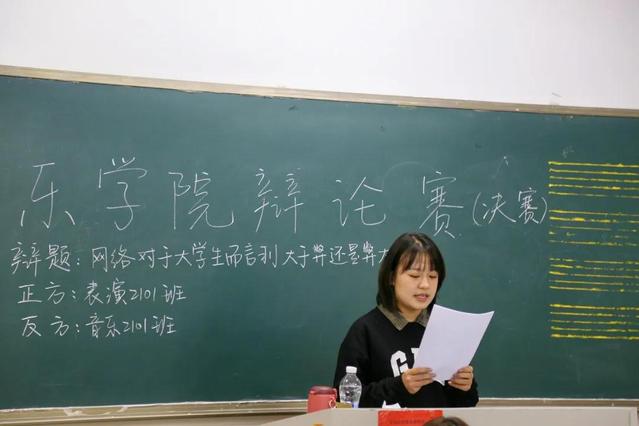 乐学院辩论赛(决赛)
辩题：网络对于大学生而言利大于弊还是弊大
正方：表演2101班
反方：音乐2101班
G